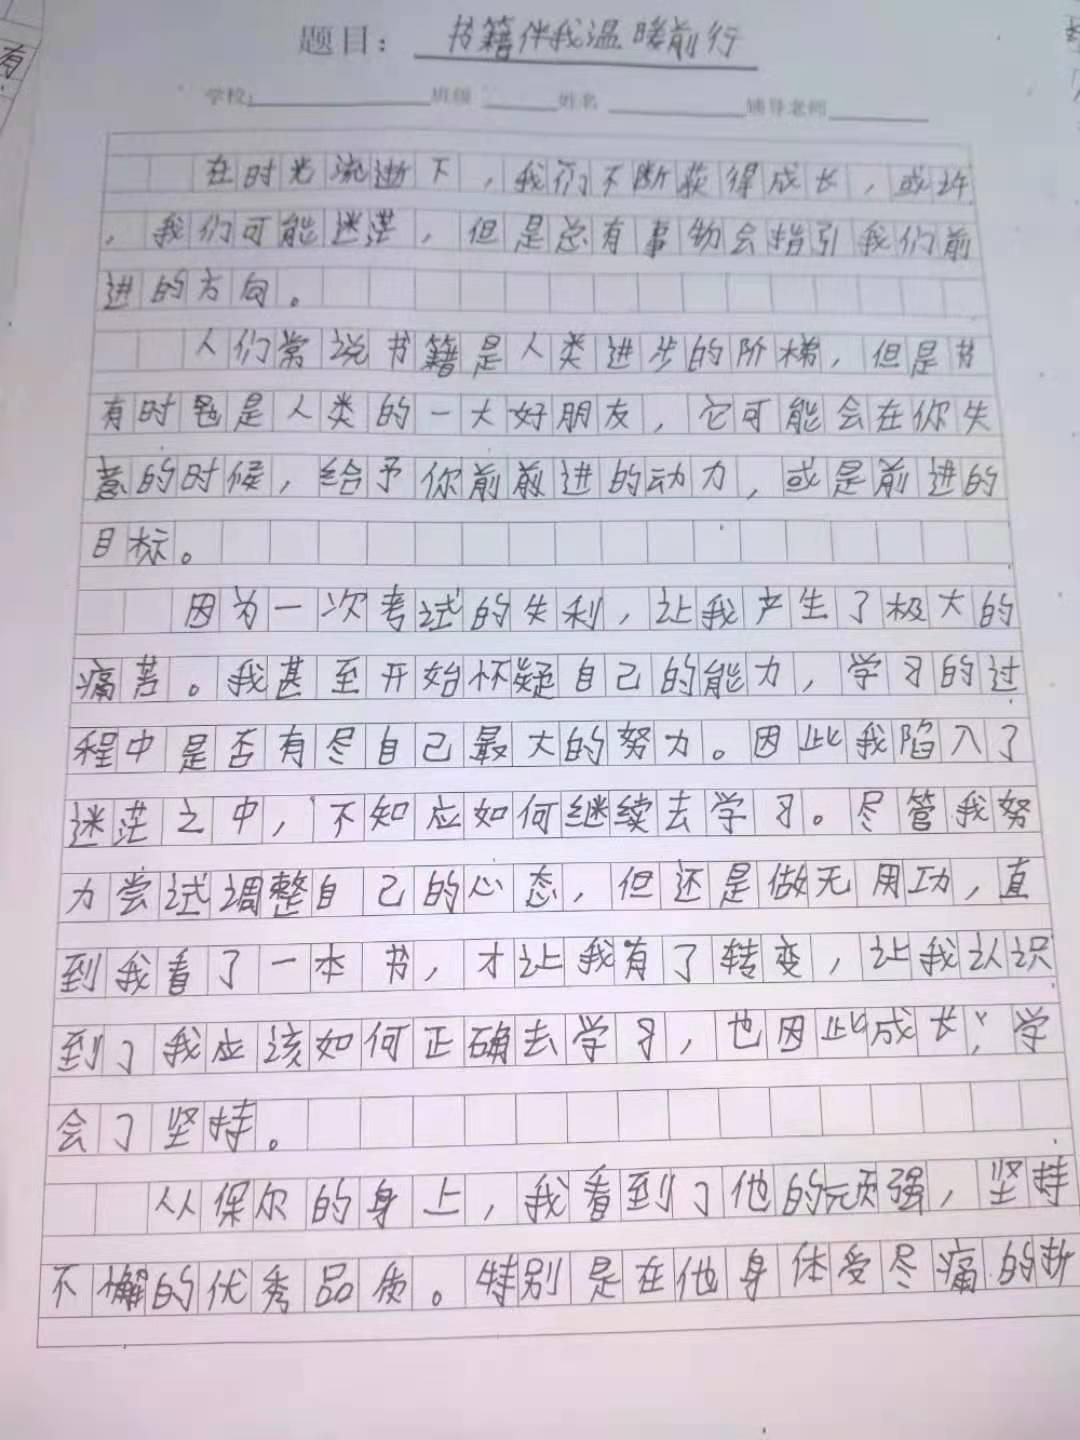 题目：书籍伴我温暖前行
学校 班级 姓名 辅导老师
在时光流逝下，我们不断获得成长，或许
，我们可能迷茫，但是总有事物会指引我们前
进的方向。
人们常说书籍是人类进步的阶梯，但是书
有时也是人类的一大好朋友，它可能会在你失
意的时候，给予你前前进的动力，或是前进的
目标。
因为一次考试的失利，让我产生了极大的
痛苦。我甚至开始怀疑自己的能力，学习的过
程中是否有尽自己最大的努力。因此我陷入了
迷茫之中，不知应如何继续去学习。尽管我努
力尝试调整自己的心态，但还是做无用功，直
到我看了一本书，才让我有了转变，让我认识
到了我应该如何正确去学习，也因此成长，学
会了坚持。
从保尔的身上，我看到了他的顽强，坚持
不懈的优秀品质。特别是在他身体受尽痛的折
有